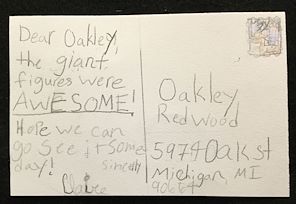 Dear Oakley,
the giant
figures were
AWESOME!
Hope we can
go see it some
day!
Sincerely
Claire
Oakley
Redwood
5974 Oak st
Michigan, MI